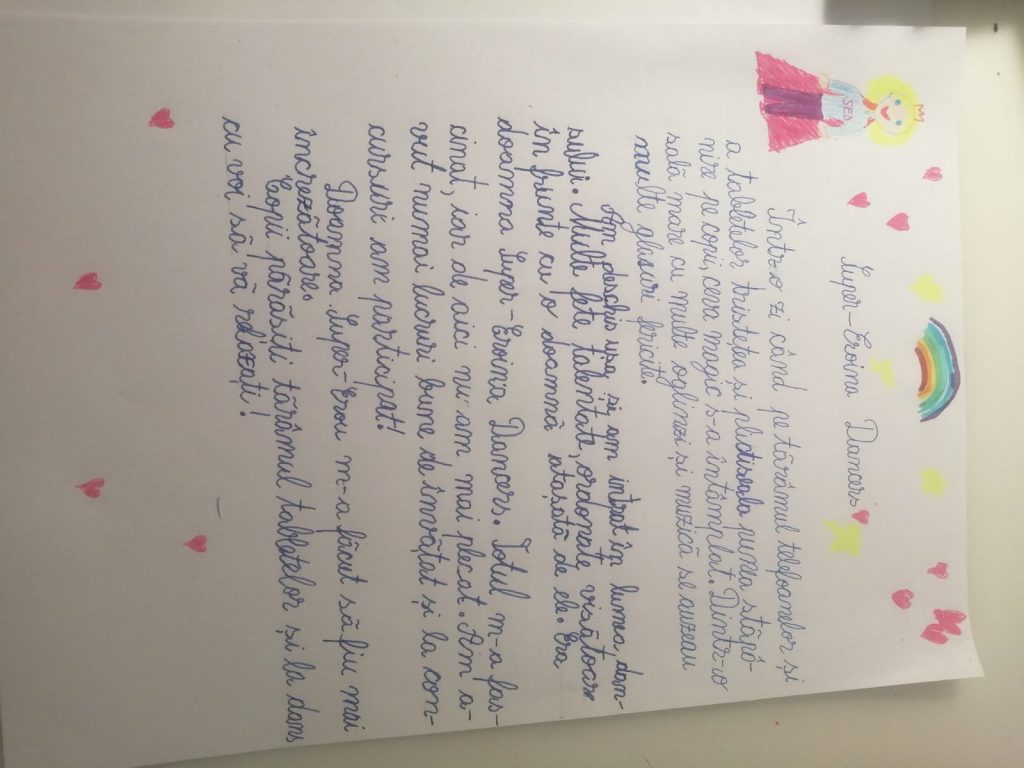 Super-Eroina Dancers
Într-o zi când pe tărâmul telefoanelor și
a tabletelor tristețea și plictiseala punea stăpâ-
nire pe copii, ceva magic s-a întâmplat. Dintr-o
sală mare cu multe oglinzi și muzică se auzeau
multe glasuri fericite.
Am deschis ușa și am intrat în lumea dan-
sului. Multe fete talentate, ordonate visătoare
în frunte cu o doamnă atașată de ele. Era
doamna Super-Eroina Dancers. Totul m-a fas-
cinat, iar de aici nu am mai plecat. Am a-
vut numai lucruri bune de învățat și la con-
cursuri am participat!
Doamna Super-Erou m-a făcut să fiu mai
încrezătoare.
Copii părăsiți tărâmul tabletelor și la dans
cu voi să vă relaxați!
SED